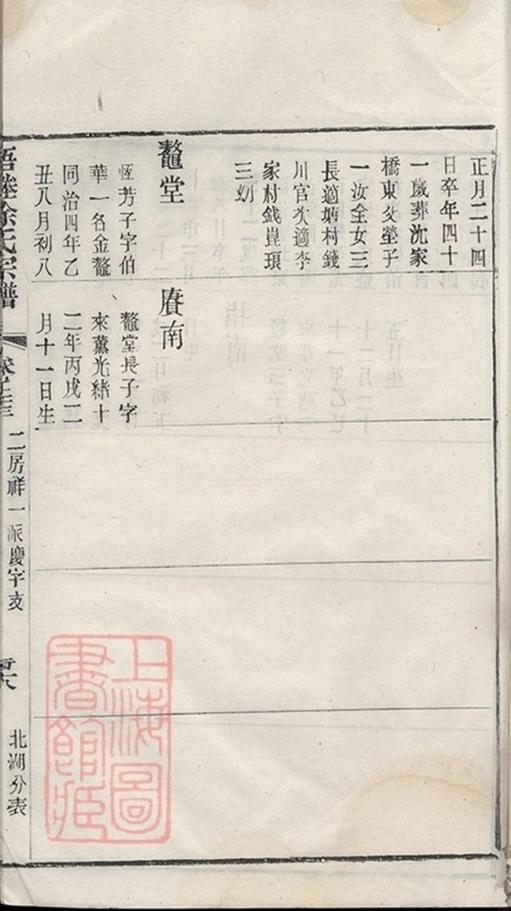 正月二十四
日卒年四十
一歲葬沈家
橋東父塋子
一汝全女三
長適塘村錢
川官次適李
家村錢崑琅
三幼
鼇堂
恆芳子字伯
華一名金鼇
同治四年乙
丑八月初八
賡南
鼇堂長子字
來薰光緒十
二年丙戌二
月十一日生
徐氏宗譜
二房祥一派慶字支
北湖分表
上海圖
書館藏